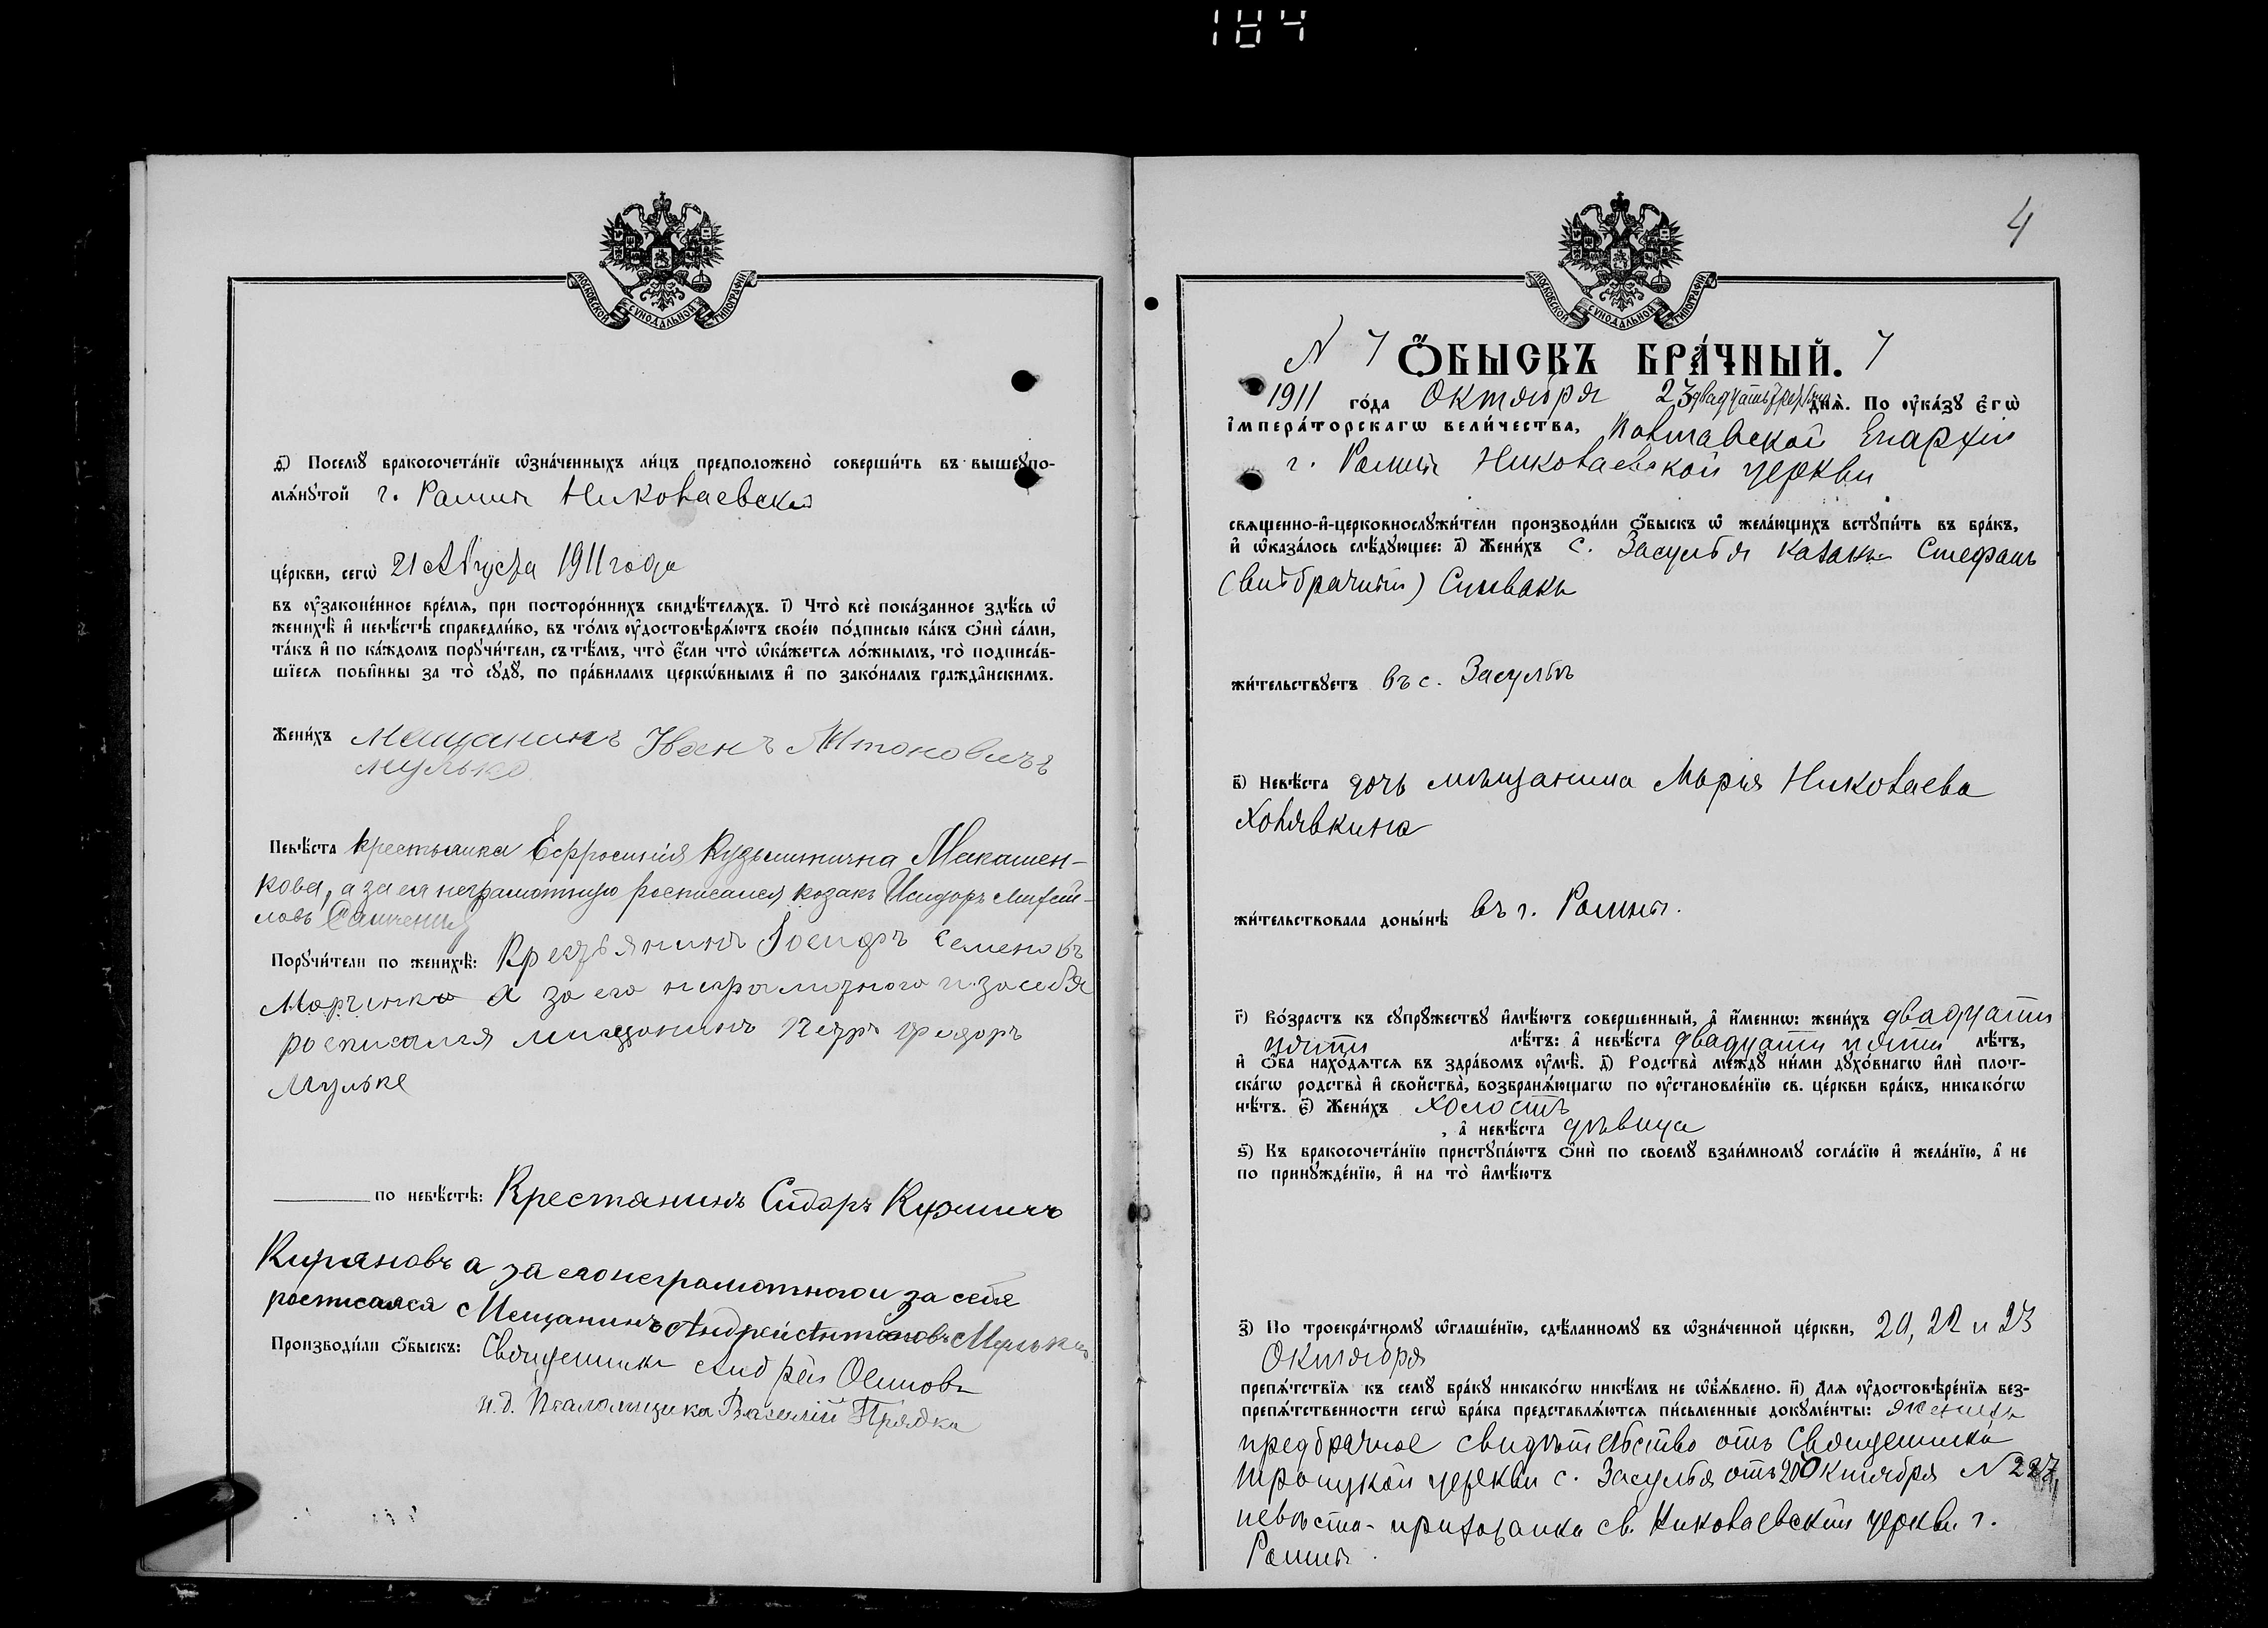 184
МОСКОВСКОЙ СУНОДАЛЬНОЙ ТИПОГРАФІИ
д҃) Посемꙋ бракосочета́нїе ѡ҆зна́ченныхъ ли́цъ предположено̀ соверши́ть въ вышеꙋпо-
мѧ́нꙋтой г. Ромны Николаевской
це́ркви, сегѡ̀ 21 Августа 1911 года
въ ᲂу҆законе́нное вре́мѧ, при посторо́ннихъ свидѣ́телѧхъ. і҃) Что̀ всѐ пока́занное здѣ́сь ѡ҆
женихѣ̀ и҆ невѣ́стѣ справедли́во, въ то́мъ ᲂу҆достовѣрѧ́ютъ свое́ю по́дписью ка́къ ѻ҆нѝ са́ми,
та́къ и҆ по ка́ждомъ порꙋчи́тели, съ тѣ́мъ, что̀ є҆́сли что̀ ѡ҆ка́жетсѧ ло́жнымъ, то̀ подписа́в-
шїесѧ пови́нны за то̀ сꙋдꙋ̀, по пра́виламъ церко́внымъ и҆ по зако́намъ гражда́нскимъ.
Жени́хъ Мещанинъ Иванъ Антоновичъ
Мулько
Невѣ́ста крестьянка Ефросинія Кузьминична Макашен-
кова, а за ея неграмотную росписался козакъ Исидоръ Михай-
ловъ
Порꙋчи́тели по женихѣ̀: Крестьянинъ Іосифъ Семеновъ
Марченко а за его неграмотного и за себя
росписался мищонинъ Петръ Федоръ
Мулько
по невѣ́стѣ: Крестянинъ Сидоръ Кузмичъ
Киряновъ а за его неграмотного и за себя
росписался Мещанинъ Андрей Антоновъ Мулько
Производи́ли ѻ҆́быскъ: Священникъ Андрей Осиповъ
и.д. Псаломщика Василій Прядка
4
МОСКОВСКОЙ СУНОДАЛЬНОЙ ТИПОГРАФІИ
N 7 Ѻ҆́БЫСКЪ БРА́ЧНЫЙ. 7
1911 го́да Октября 23 двадцать третьяго днѧ̀. По ᲂу҆ка́зꙋ є҆гѡ̀
і҆мпера́торскагѡ вели́чества, Полтавской Епархіи
г. Ромны Николаевской церкви
свѧщенно-и҆-церковнослꙋжи́тели производи́ли ѻ҆́быскъ ѡ҆ жела́ющихъ встꙋпи́ть въ бра́къ,
и҆ ѡ҆каза́лось слѣ́дꙋющее: а҃) Жени́хъ с. Засулья казакъ Стефанъ
(внѣбрачный) Сливакъ
жи́тельствꙋетъ въ с. Засульѣ
в҃) Невѣ́ста дочь мѣщанина Марія Николаева
Холявкина
жи́тельствовала доны́нѣ въ г. Ромны.
г҃) Во́зрастъ къ сꙋпрꙋ́жествꙋ и҆мѣ́ютъ соверше́нный, а҆ и҆́меннѡ: жени́хъ двадцати
пяти лѣ́тъ: а҆ невѣ́ста двадцати пяти лѣ́тъ,
и҆ ѻ҆́ба нахо́дѧтсѧ въ здра́вомъ ᲂу҆мѣ̀. д҃) Родства̀ ме́ждꙋ ни́ми дꙋхо́внагѡ и҆лѝ плот-
ска́гѡ родства̀ и҆ свойства̀, возбранѧ́ющагѡ по ᲂу҆становле́нїю св. це́ркви бра́къ, никако́гѡ
нѣ́тъ. є҃) Жени́хъ холостъ
, а҆ невѣ́ста дѣвица
ѕ҃) Къ бракосочета́нїю пристꙋпа́ютъ ѻ҆нѝ по своемꙋ̀ взаи́мномꙋ согла́сїю и҆ жела́нїю, а҆ не
по принꙋжде́нїю, и҆ на то̀ и҆мѣ́ютъ
з҃) По троекра́тномꙋ ѡ҆глаше́нїю, сдѣ́ланномꙋ въ ѡ҆зна́ченной це́ркви, 20, 22 и 23
Октября
препѧ́тствїѧ къ семꙋ̀ бра́кꙋ никако́гѡ никѣ́мъ не ѡ҆б̾ѧ́влено. и҃) Длѧ ᲂу҆достовѣре́нїѧ без-
препѧ́тственности сегѡ̀ бра́ка представлѧ́ютсѧ пи́сьменные докꙋме́нты: женихъ
предбрачное свидѣтельство отъ Священника
Троицкой церкви с. Засулья отъ 20 Октября N 227,
невѣста - прихожанка св. Николаевской церкви г.
Ромны.